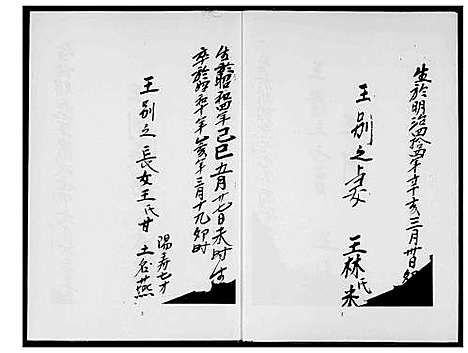 生於明治四拾四年辛亥三月廿日卯
王別之妻 王林氏未
生於昭和四年己巳五月廿七日未时
卒於昭和十年乙亥年三月十九卯时
王别之長女王氏甘 土名燕
陽寿七才